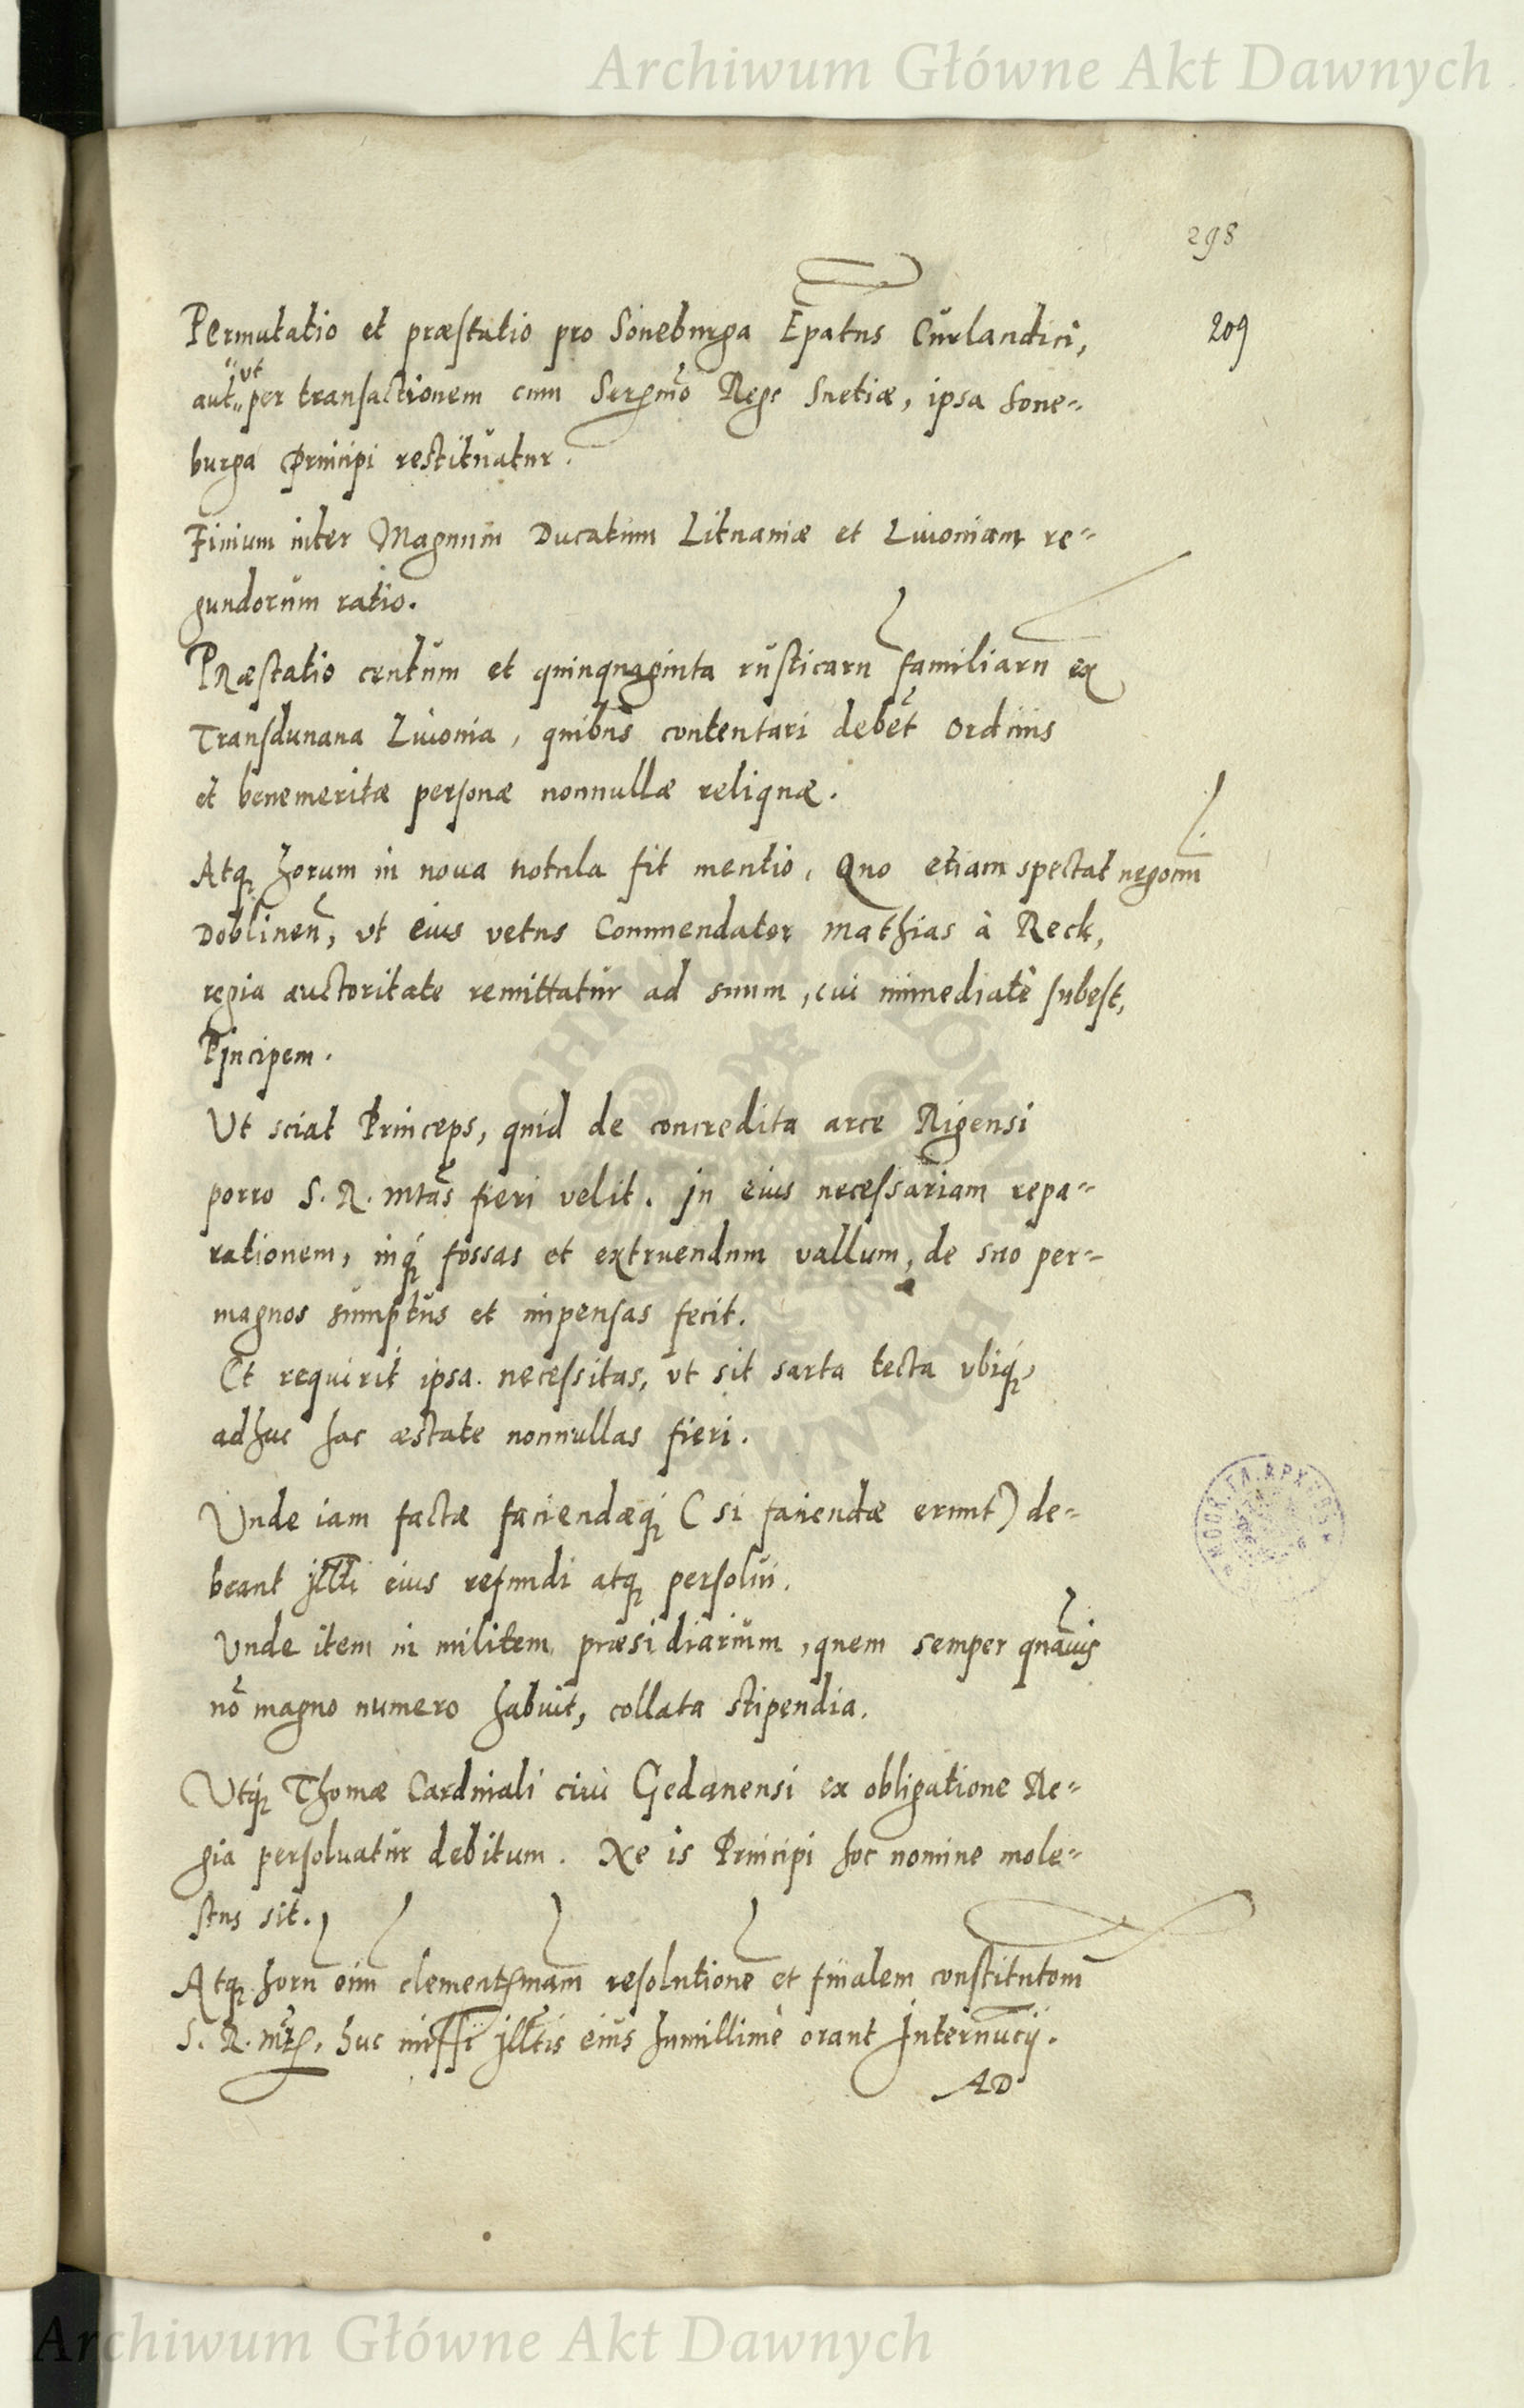 Archiwum Główne Akt Dawnych
298
Permutatio et præstatio pro Soneburga Ep̄atus Curlandici, 209
ut
aut per transactionem cum Serenmo Rege Suetiæ, ipsa Sone=
burga Principi restituatur.
Finium inter Magnum Ducatum Lituaniæ et Liuoniam re=
gundorum ratio.
Præstatio centum et quinquaginta rusticarū familiarū ex
Transdunana Liuonia, quibus contentari debēt ordinis
et benemeritæ personæ nonnullæ reliquæ.
Atq horum in noua notula fit mentio, Quo etiam spectat negocm̄
Doblinen̄, ut eius vetus Commendator Mathias à Reck,
regia auctoritate remittatur ad suum, cui immediatè subest,
Principem.
Ut sciat Princeps, quid de concredita arce Rigensi
porro S. R. Mtas fieri velit. In eius necessariam repa=
rationem, inq́ fossas et extruendum vallum, de suo per=
magnos sumptus et impensas fecit.
Et requirit ipsa necessitas, ut sit sarta tecta ubiq́,
adhuc hac æstate nonnullas fieri.
Unde iam factæ faciendæq́ (si faciendæ erunt) de=
beant Illti eius refundi atq persolui.
Unde item in militem præsidiarium, quem semper quāuis
nō magno numero habuit, collata stipendia.
Utq́ Thomæ Cardinali ciui Gedanensi ex obligatione Re=
gia persoluatur debitum. Ne is Principi hoc nomine mole=
stus sit.
Atq horū oīm clementissmam resolutionē et finalem constitutom̄
S. R. Mtis, huc missi Illtis eius humillimè orant Internucij.
AD
МОСК. ГЛ. АРХИВЪ
Archiwum Główne Akt Dawnych